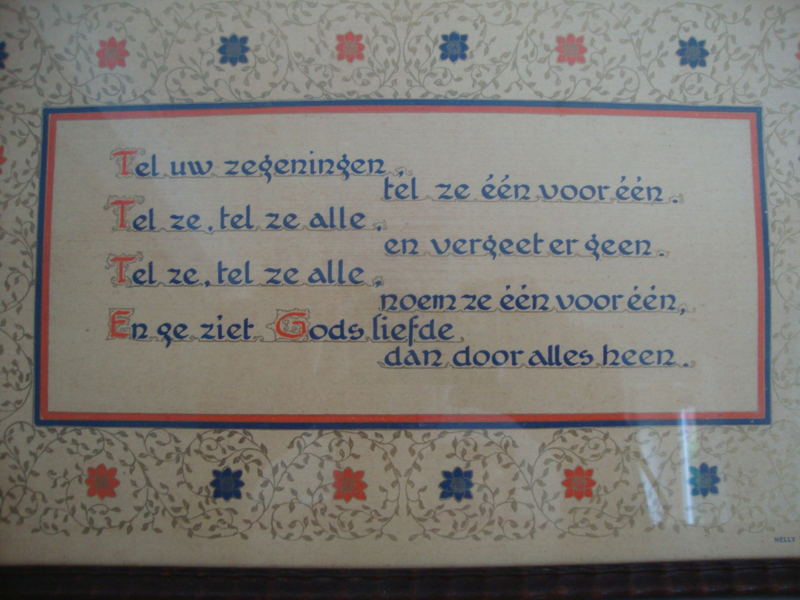 Tel uw zegeningen,
tel ze één voor één.
Tel ze, tel ze alle,
en vergeet er geen.
Tel ze, tel ze alle,
noem ze één voor één,
En ge ziet Gods liefde
dan door alles heen.
NELLY